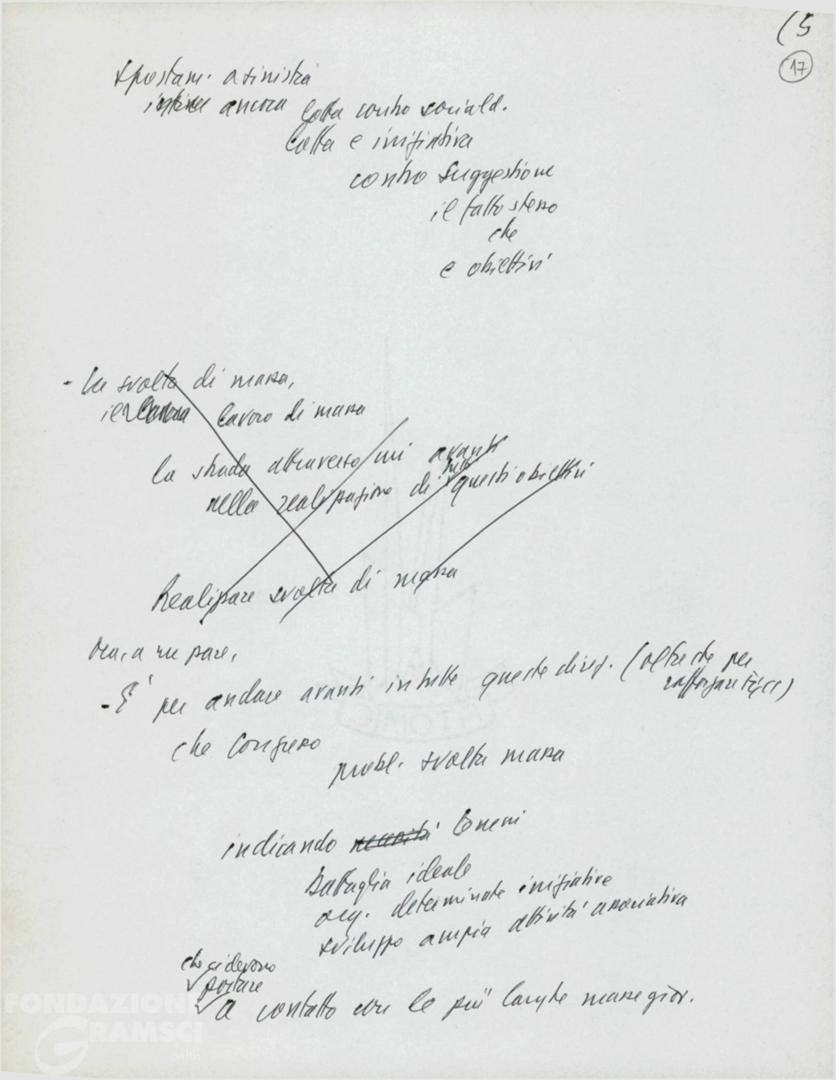 (5
17
spostam. a sinistra
ancora lotta contro sociald.
lotta e iniziativa
contro suggestione
il fatto stesso
che
e obiettivi
- La svolta di massa,
il lavoro di massa
la strada attraverso cui avanti
nella realizzazione di tutti questi obiettivi
Realizzare svolta di massa
pare,
- E' per andare avanti in tutte queste direz. (oltre che per
rafforzare FGCI)
che Congresso
probl. svolta massa
indicando necessità terreni
Battaglia ideale
org. determinate iniziative
sviluppo ampia attività associativa
che ci devono
portare
a contatto con le più larghe masse giov.
FONDAZIONE
GRAMSCI